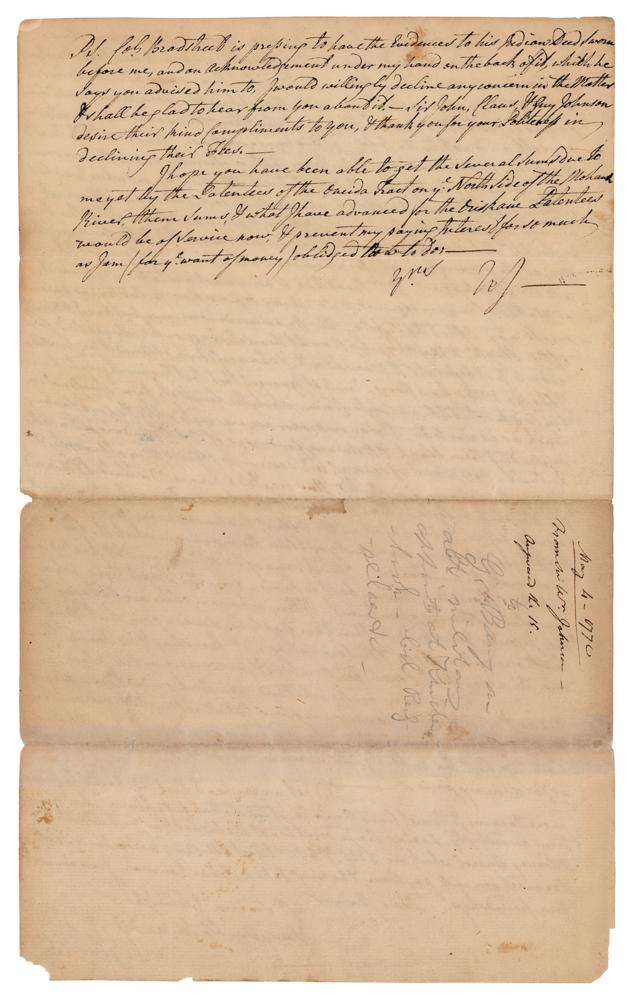 PS. Col. Bradstreet is pressing to have the Evidences to his Indian Deed sworn
before me, and an acknowledgement under my hand on the back of it which he
says you advised him to, I would willingly decline any concern in the Matter
& shall be glad to hear from you about it. — Sir John, Claus, & Guy Johnson
desire their kind Compliments to you, & thank you for your Politeness in
declining their Fees. —
I hope you have been able to get the several sums due to
me yet by the Patentees of the Oneida Tract on ye. North side of the Mohawk
River, them sums, & what I have advanced for the Brisbane Patentees
would be of service now, & prevent my paying Interest for so much
as I am / for ye. want of money / obliged to Do —
Yrs
WJ —
May 4 - 1770
From Sir Wm. Johnson —
Answered the 18.
to
military
at
release —